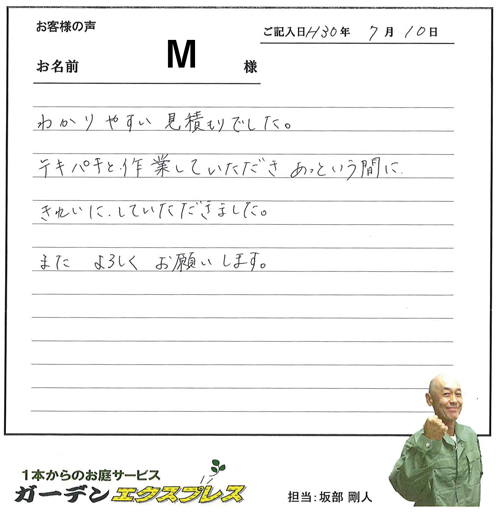 お客様の声
ご記入日 H30年 7月 10日
お名前 M 様
わかりやすい見積もりでした。
テキパキと作業していただき あっという間に
きれいに していただきました。
また よろしく お願いします。
1本からのお庭サービス
ガーデンエクスプレス
担当:坂部 剛人